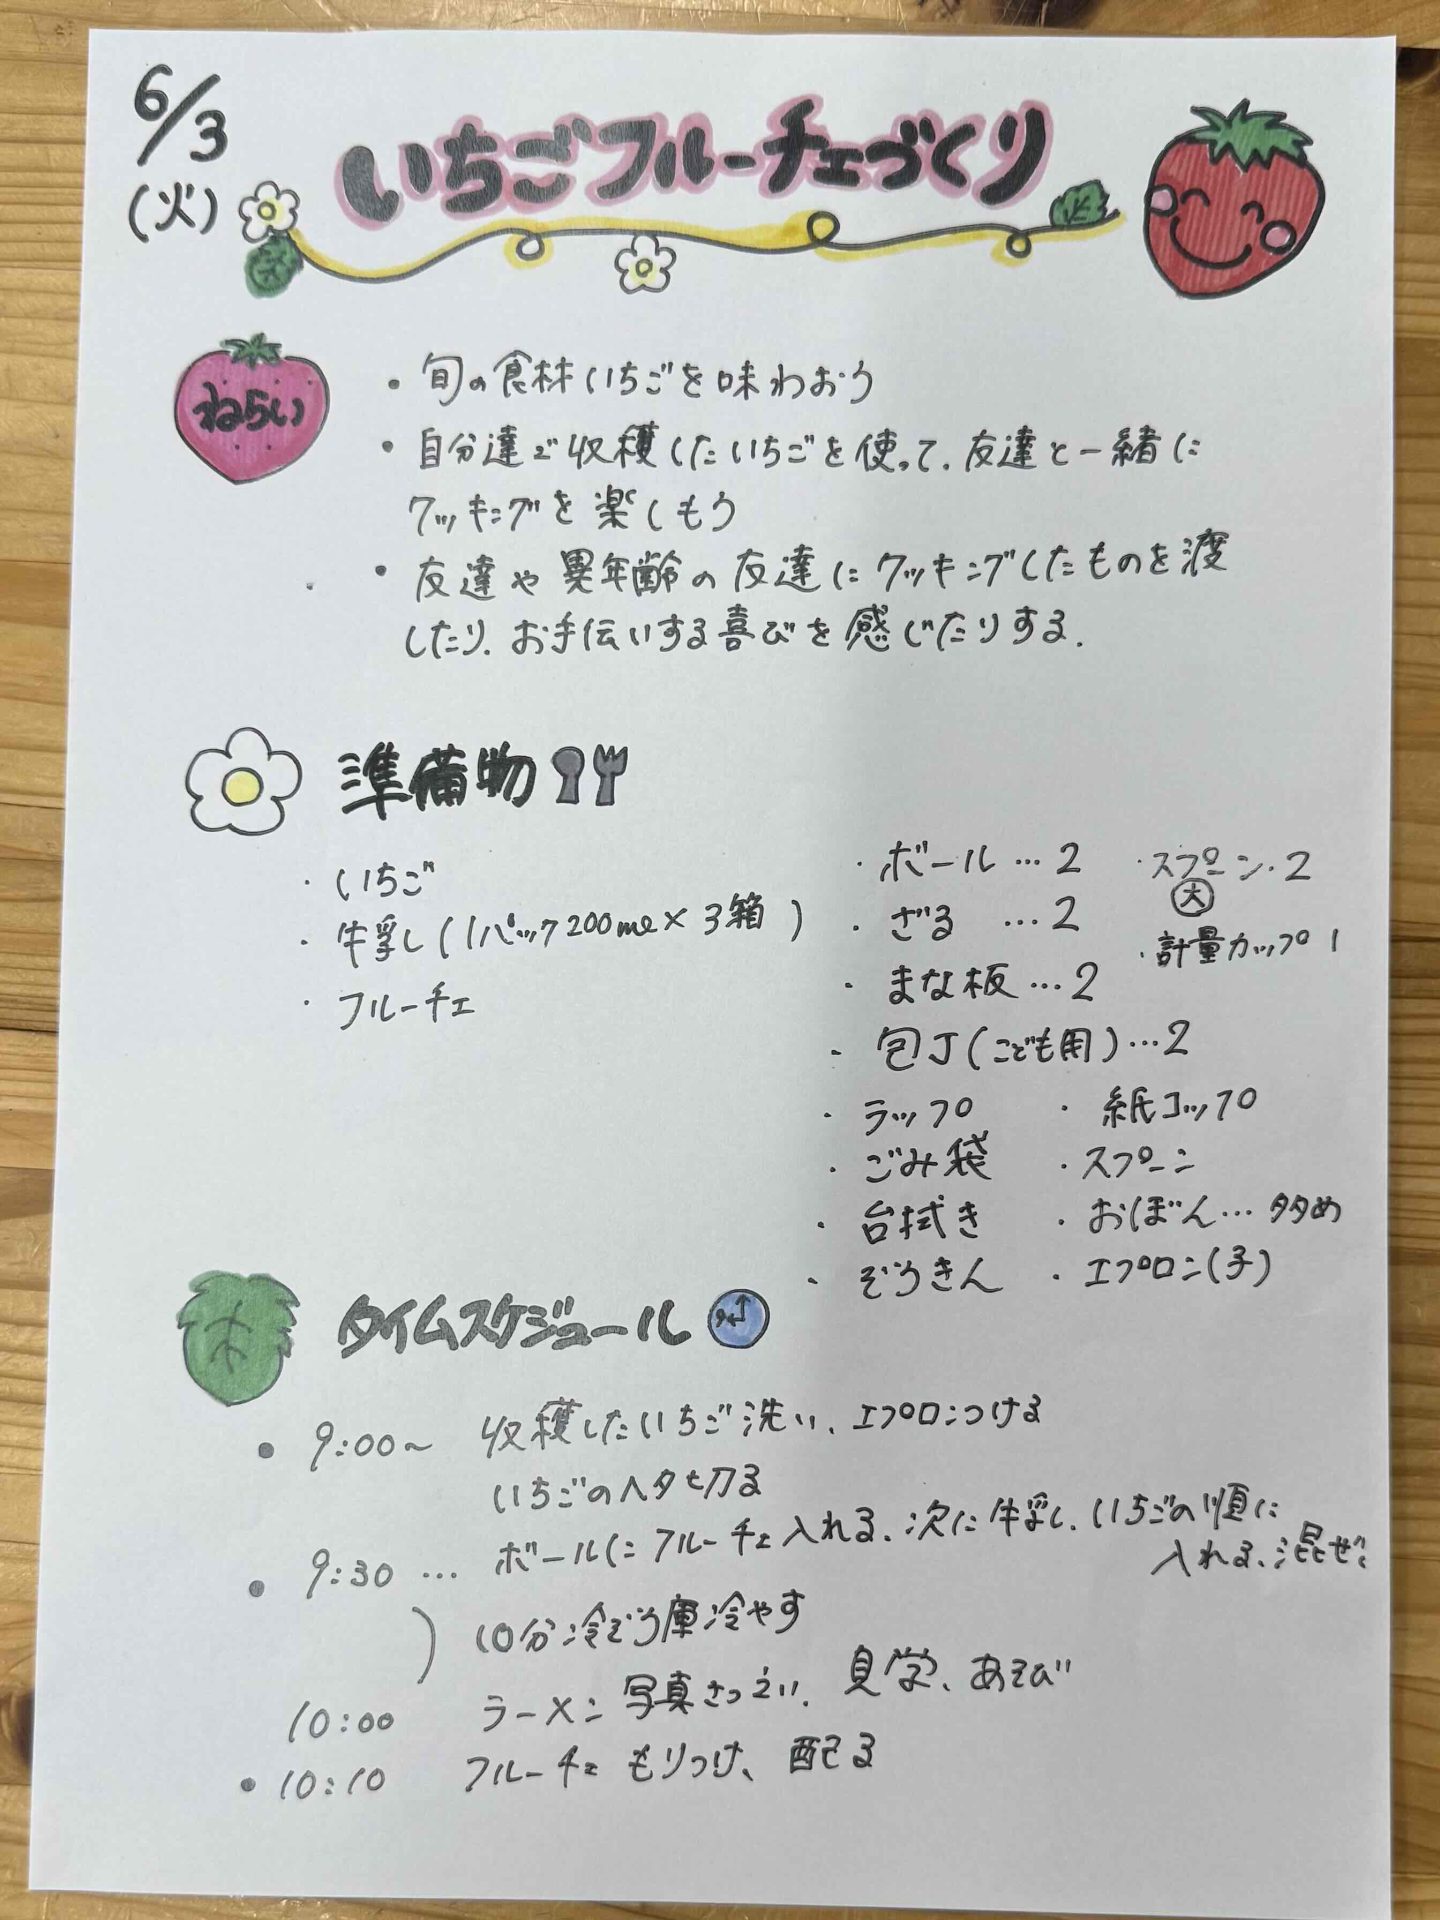 6/3
(火)
いちごフルーチェづくり
ねらい
・旬の食材いちごを味わおう
・自分達で収穫したいちごを使って、友達と一緒に
クッキングを楽しもう
・友達や異年齢の友達にクッキングしたものを渡
したり、お手伝いする喜びを感じたりする。
準備物
・いちご
・牛乳し(1パック200ml×3箱)
・フルーチェ
・ボール…2
・ざる…2
・まな板…2
・包丁(こども用)…2
・ラップ
・ごみ袋
・台拭き
・ぞうきん
・スプーン・2
大
・計量カップ1
・紙コップ
・スプーン
・おぼん…多め
・エプロン(子)
タイムスケジュール
・9:00~ 収穫したいちご洗い、エプロンつける
いちごのヘタを切る
・9:30… ボールにフルーチェ入れる、次に牛乳し、いちごの順に
入れる、混ぜる
) 10分冷ぞう庫冷やす
10:00 ラーメン 写真さつえい、見学、あそび
・10:10 フルーチェもりつけ、配る